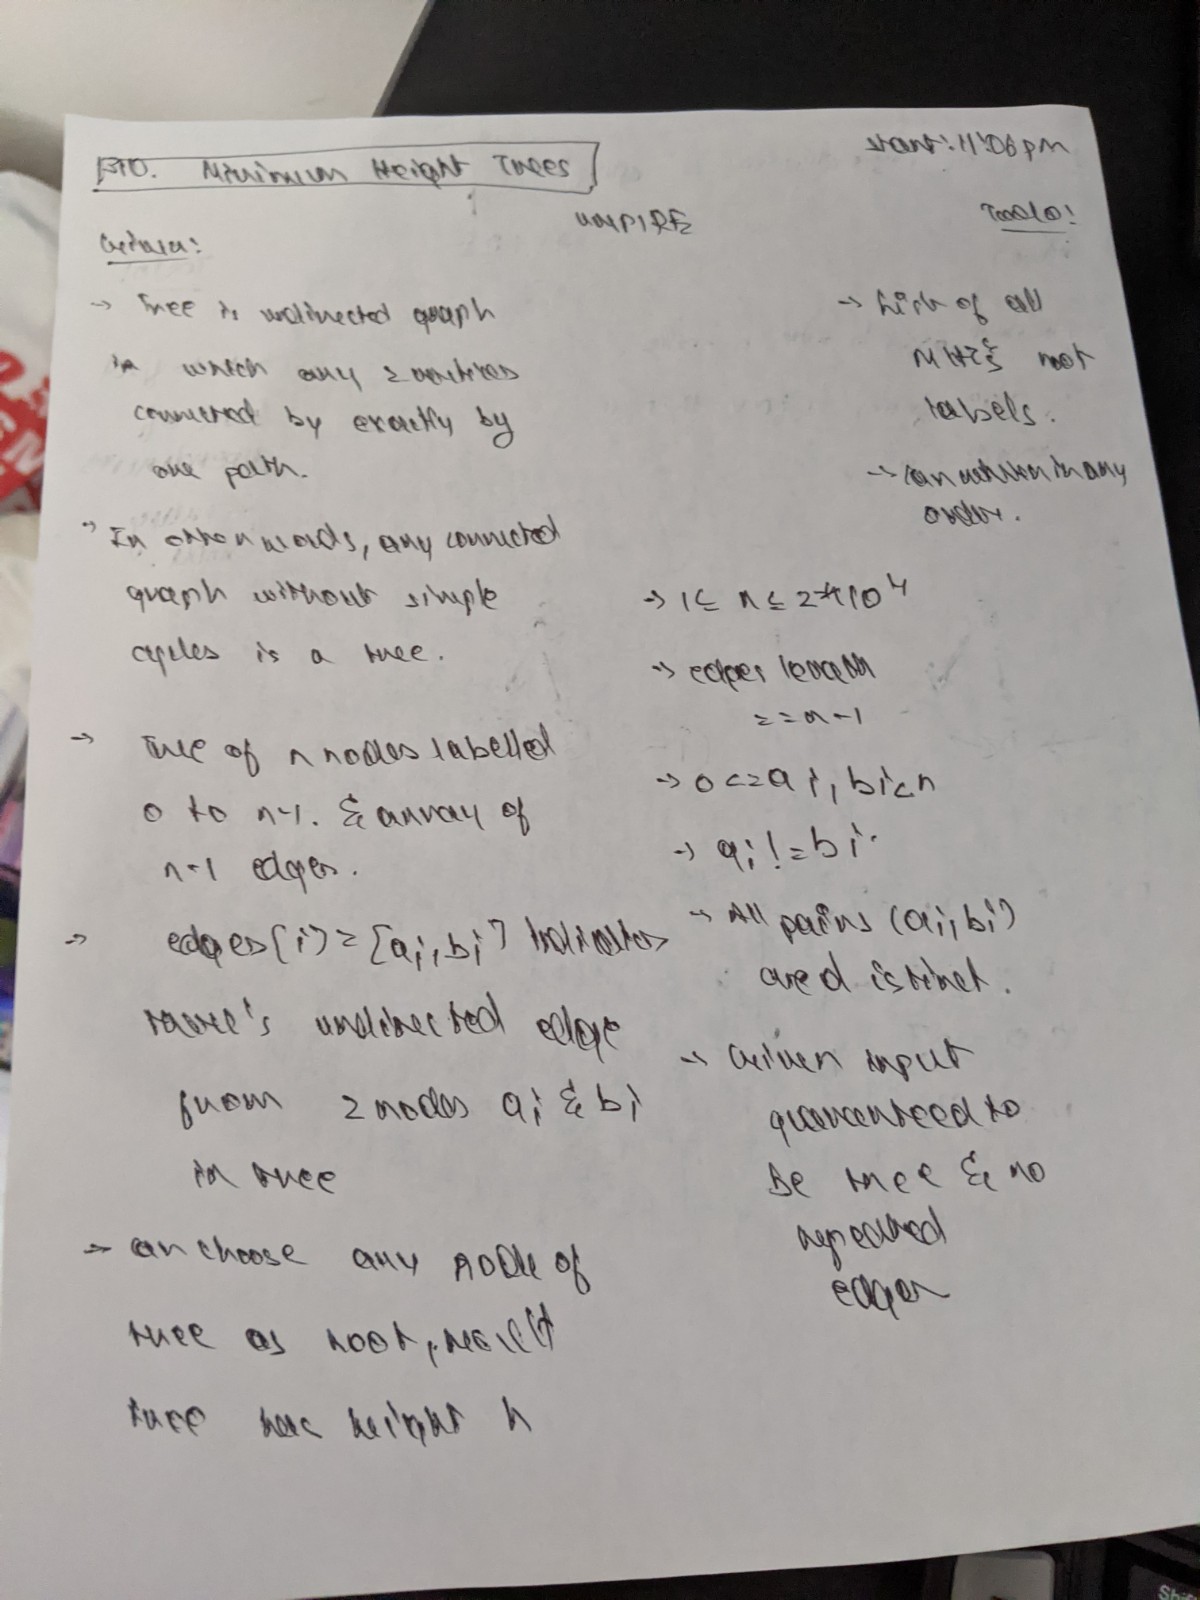 310. Minimum Height Trees
start: 11:06pm
UMPIRE
Given:
→ Tree is undirected graph
in which any 2 vertices
connected by exactly by
one path.
→ In other words, any connected
graph without simple
cycles is a tree.
→ Tree of n nodes labelled
0 to n-1. & array of
n-1 edges.
→ edges[i) = [ai, bi] indicates
there's undirected edge
from 2 nodes ai & bi
in tree
→ can choose any node of
tree as root, result
tree has height h
Todo:
→ List of all
MHTs root
labels.
→ can return in any
order.
→ 1 ≤ n ≤ 2*10^4
→ edges length
== n-1
→ 0 <= ai, bi < n
→ ai != bi.
→ All pairs (ai, bi)
are distinct.
→ Given input
guaranteed to
be tree & no
repeated
edges
Shift